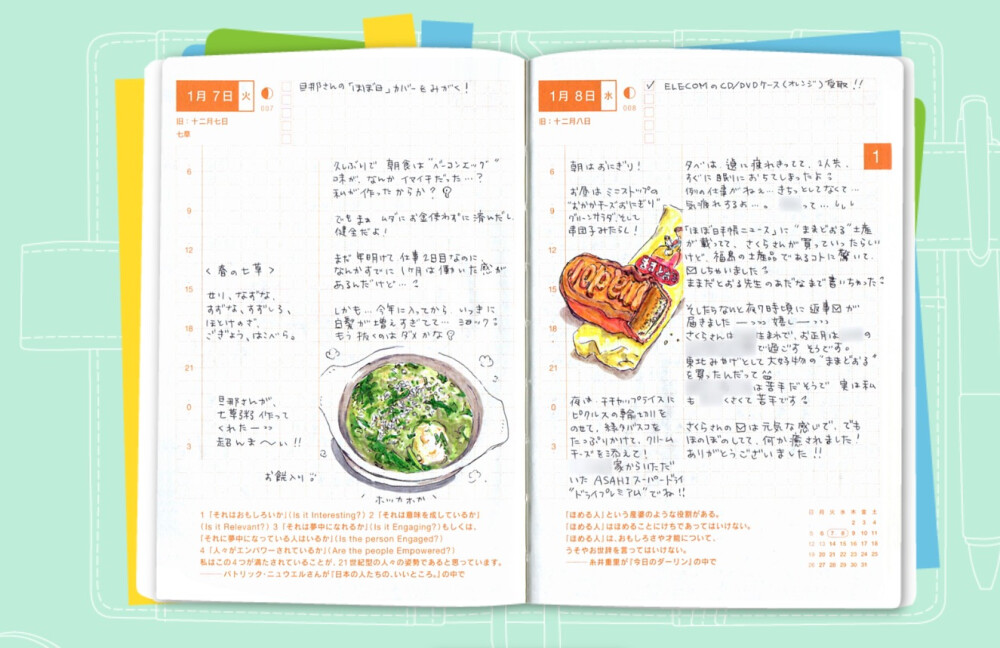 1月 7日 火
007
旧：十二月七日
七草
旦那さんの「ほぼ日」カバーをみがく！
6
9
12
15
18
21
0
3
久しぶりで 朝食は"ベーコンエッグ"
味が、なんか イマイチだった…？
私が作ったからか？
でもまぁ ムダにお金使わずに 済んだし、
健全だよ！
まだ 年明けて 仕事2日目なのに
なんかすでに 1ヶ月は働いた感が
あるんだけど…
しかも… 今年に入ってから、いっきに
白髪が増えすぎてて… ショック
もう 抜くのは ダメかな
＜ 春の七草 ＞
せり、なずな、
すずな、すずしろ、
ほとけのざ、
ごぎょう、はこべら。
旦那さんが、
七草粥 作って
くれたーっ
超んま〜い!!
お餅入り
ホッカホカ
1「それはおもしろいか」(Is it Interesting?) 2「それは意味を成しているか」
(Is it Relevant?) 3「それは夢中になれるか」(Is it Engaging?)もしくは、
「それに夢中になっている人はいるか」(Is the person Engaged?)
4「人々がエンパワーされているか」(Are the people Empowered?)
私はこの4つが満たされていることが、21世紀型の人々の姿勢であると思っています。
——パトリック・ニュウエルさんが『日本の人たちの、いいところ。』の中で
1月 8日 水
008
旧：十二月八日
✓ ELECOMのCD/DVDケース(オレンジ)受取!!
1
6
9
12
15
18
21
0
3
朝はおにぎり！
お昼は ミニストップの
"おかかチーズおにぎり"
グリーンサラダ、そして
串団子みたらし！
夜は、チキチャップライスに
ピクルスの輪切りを
のせて、緑タバスコを
たっぷりかけて、クリーム
チーズを添えて！
家からいただ
いた ASAHI スーパードライ
"ドライプレミアム"でね!!
夕べは、過に疲れきってて、2人共、
すぐに眠りにおちてしまったよ
例の仕事がねぇ… きちっとしてなくて…
気疲れするぉ…。
って…
「ほぼ日手帳ニュース」に "ままどおる"土産
が載ってて、さくらさんが買っていったらしい
けど、福島の土産品であるコトに驚いて、
しちゃいました
ままだとおる先生のあだなまで書いちゃった
そしたらなんと夜7時頃に 返事 が
届きましたーっっ 嬉しーっっっ
さくらさんは
生まれで、お正月は
の
で過ごす そうです。
東北みやげとして 大好物の "ままどおる"
を買ったんだって
は苦手だそうで 実は私
も
くさくて 苦手です
さくらさんの は元気な感じで、でも
ほのぼのしてて、何か癒されました！
ありがとうございました!!
ままどおる
「ほめる人」という産婆のような役割がある。
「ほめる人」はほめることにけちであってはいけない。
「ほめる人」は、おもしろさや才能について、
うそやお世辞を言ってはいけない。
——糸井重里が『今日のダーリン』の中で
日 月 火 水 木 金 土
2 3 4
5 6 7 8 9 10 11
12 13 14 15 16 17 18
19 20 21 22 23 24 25
26 27 28 29 30 31